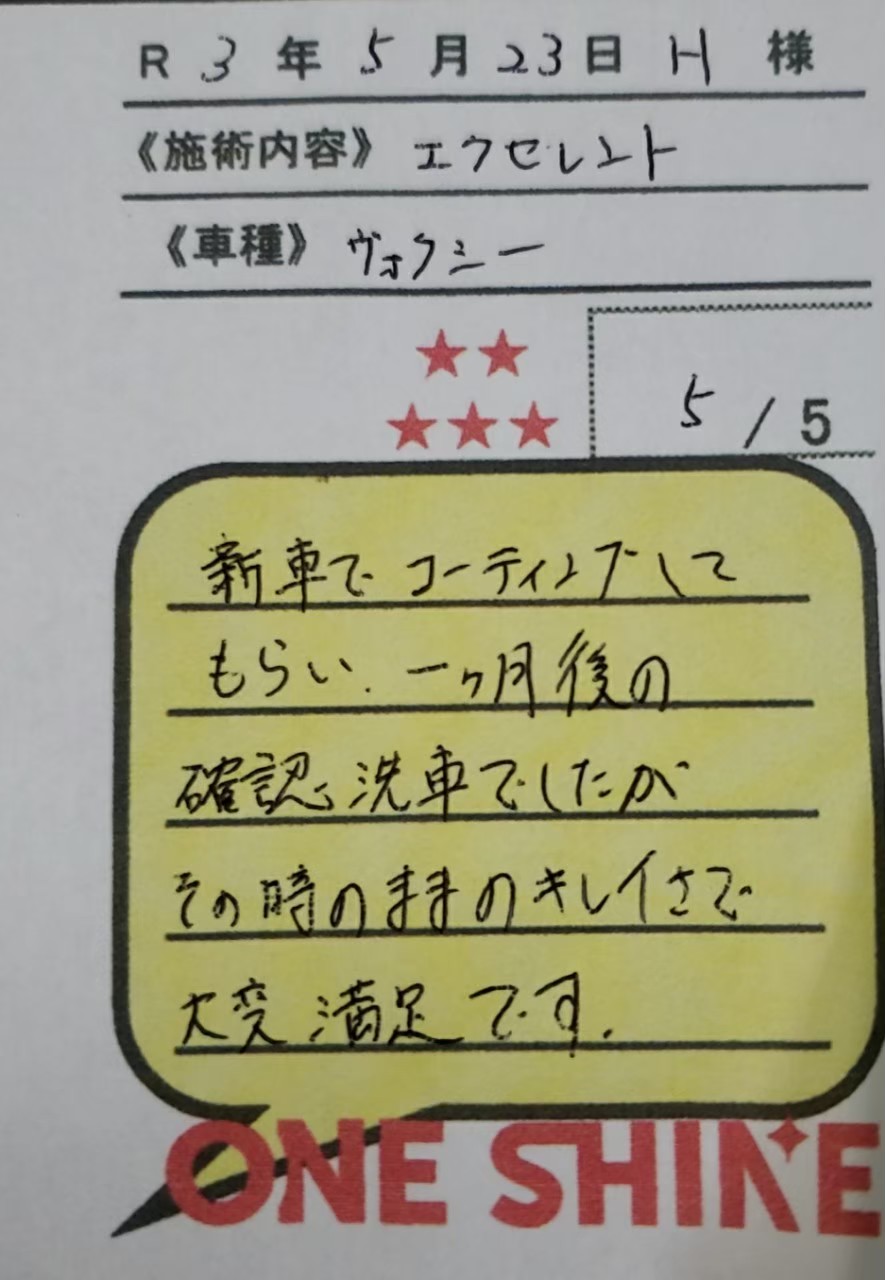 R 3 年 5 月 23 日 H 様
《施術内容》 エクセレント
《車種》 ヴォクシー
5 / 5
新車でコーティングして
もらい、一ヶ月後の
確認洗車でしたが
その時のままのキレイさで
大変満足です.
ONE SHINE